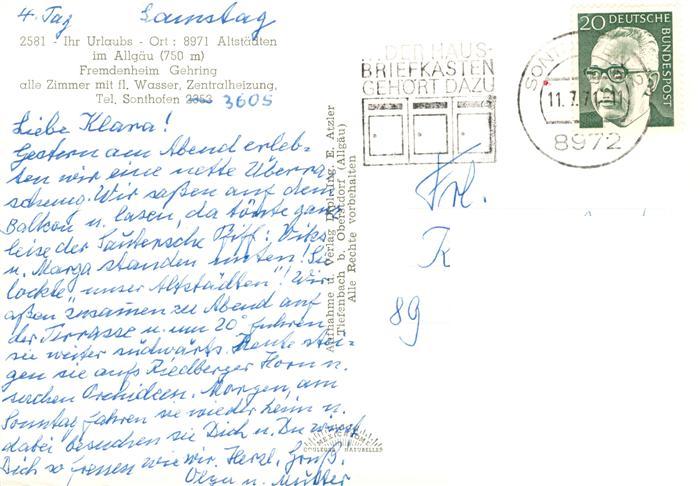 4. Tag Samstag
2581 - Ihr Urlaubs - Ort: 8971 Altstädten
im Allgäu (750 m)
Fremdenheim Gehring
alle Zimmer mit fl. Wasser, Zentralheizung,
Tel. Sonthofen 2353 3605
Liebe Klara!
Gestern am Abend erleb-
ten wir eine nette Überra-
schung. Wir saßen auf dem
Balkon u. lasen, da tönte ganz
leise der Sautersche Pfiff: Viks
u. Marga standen unten! Sie
lockte "unser Altstädten"! Wir
aßen zusammen zu Abend auf
der Terrasse u. um 20 fuhren
sie weiter südwärts. Heute stei-
gen sie aufs Riedberger Horn u.
suchen Orchideen. Morgen, am
Sonntag fahren sie wieder heim u.
dabei besuchen sie Dich u. Du wirst
Dich so freuen wie wir. Herzl. Gruß.
Olga u. Mutter
Aufnahme u. Verlag Dipl.-Ing. E. Atzler
Tiefenbach b. Oberstdorf (Allgäu)
Alle Rechte vorbehalten
MEXICHROME
COULEURS NATURELLES
...DER HAUS-
BRIEFKASTEN
GEHÖRT DAZU
11.7.71
8972
20 DEUTSCHE
BUNDESPOST
Frl.
K
89